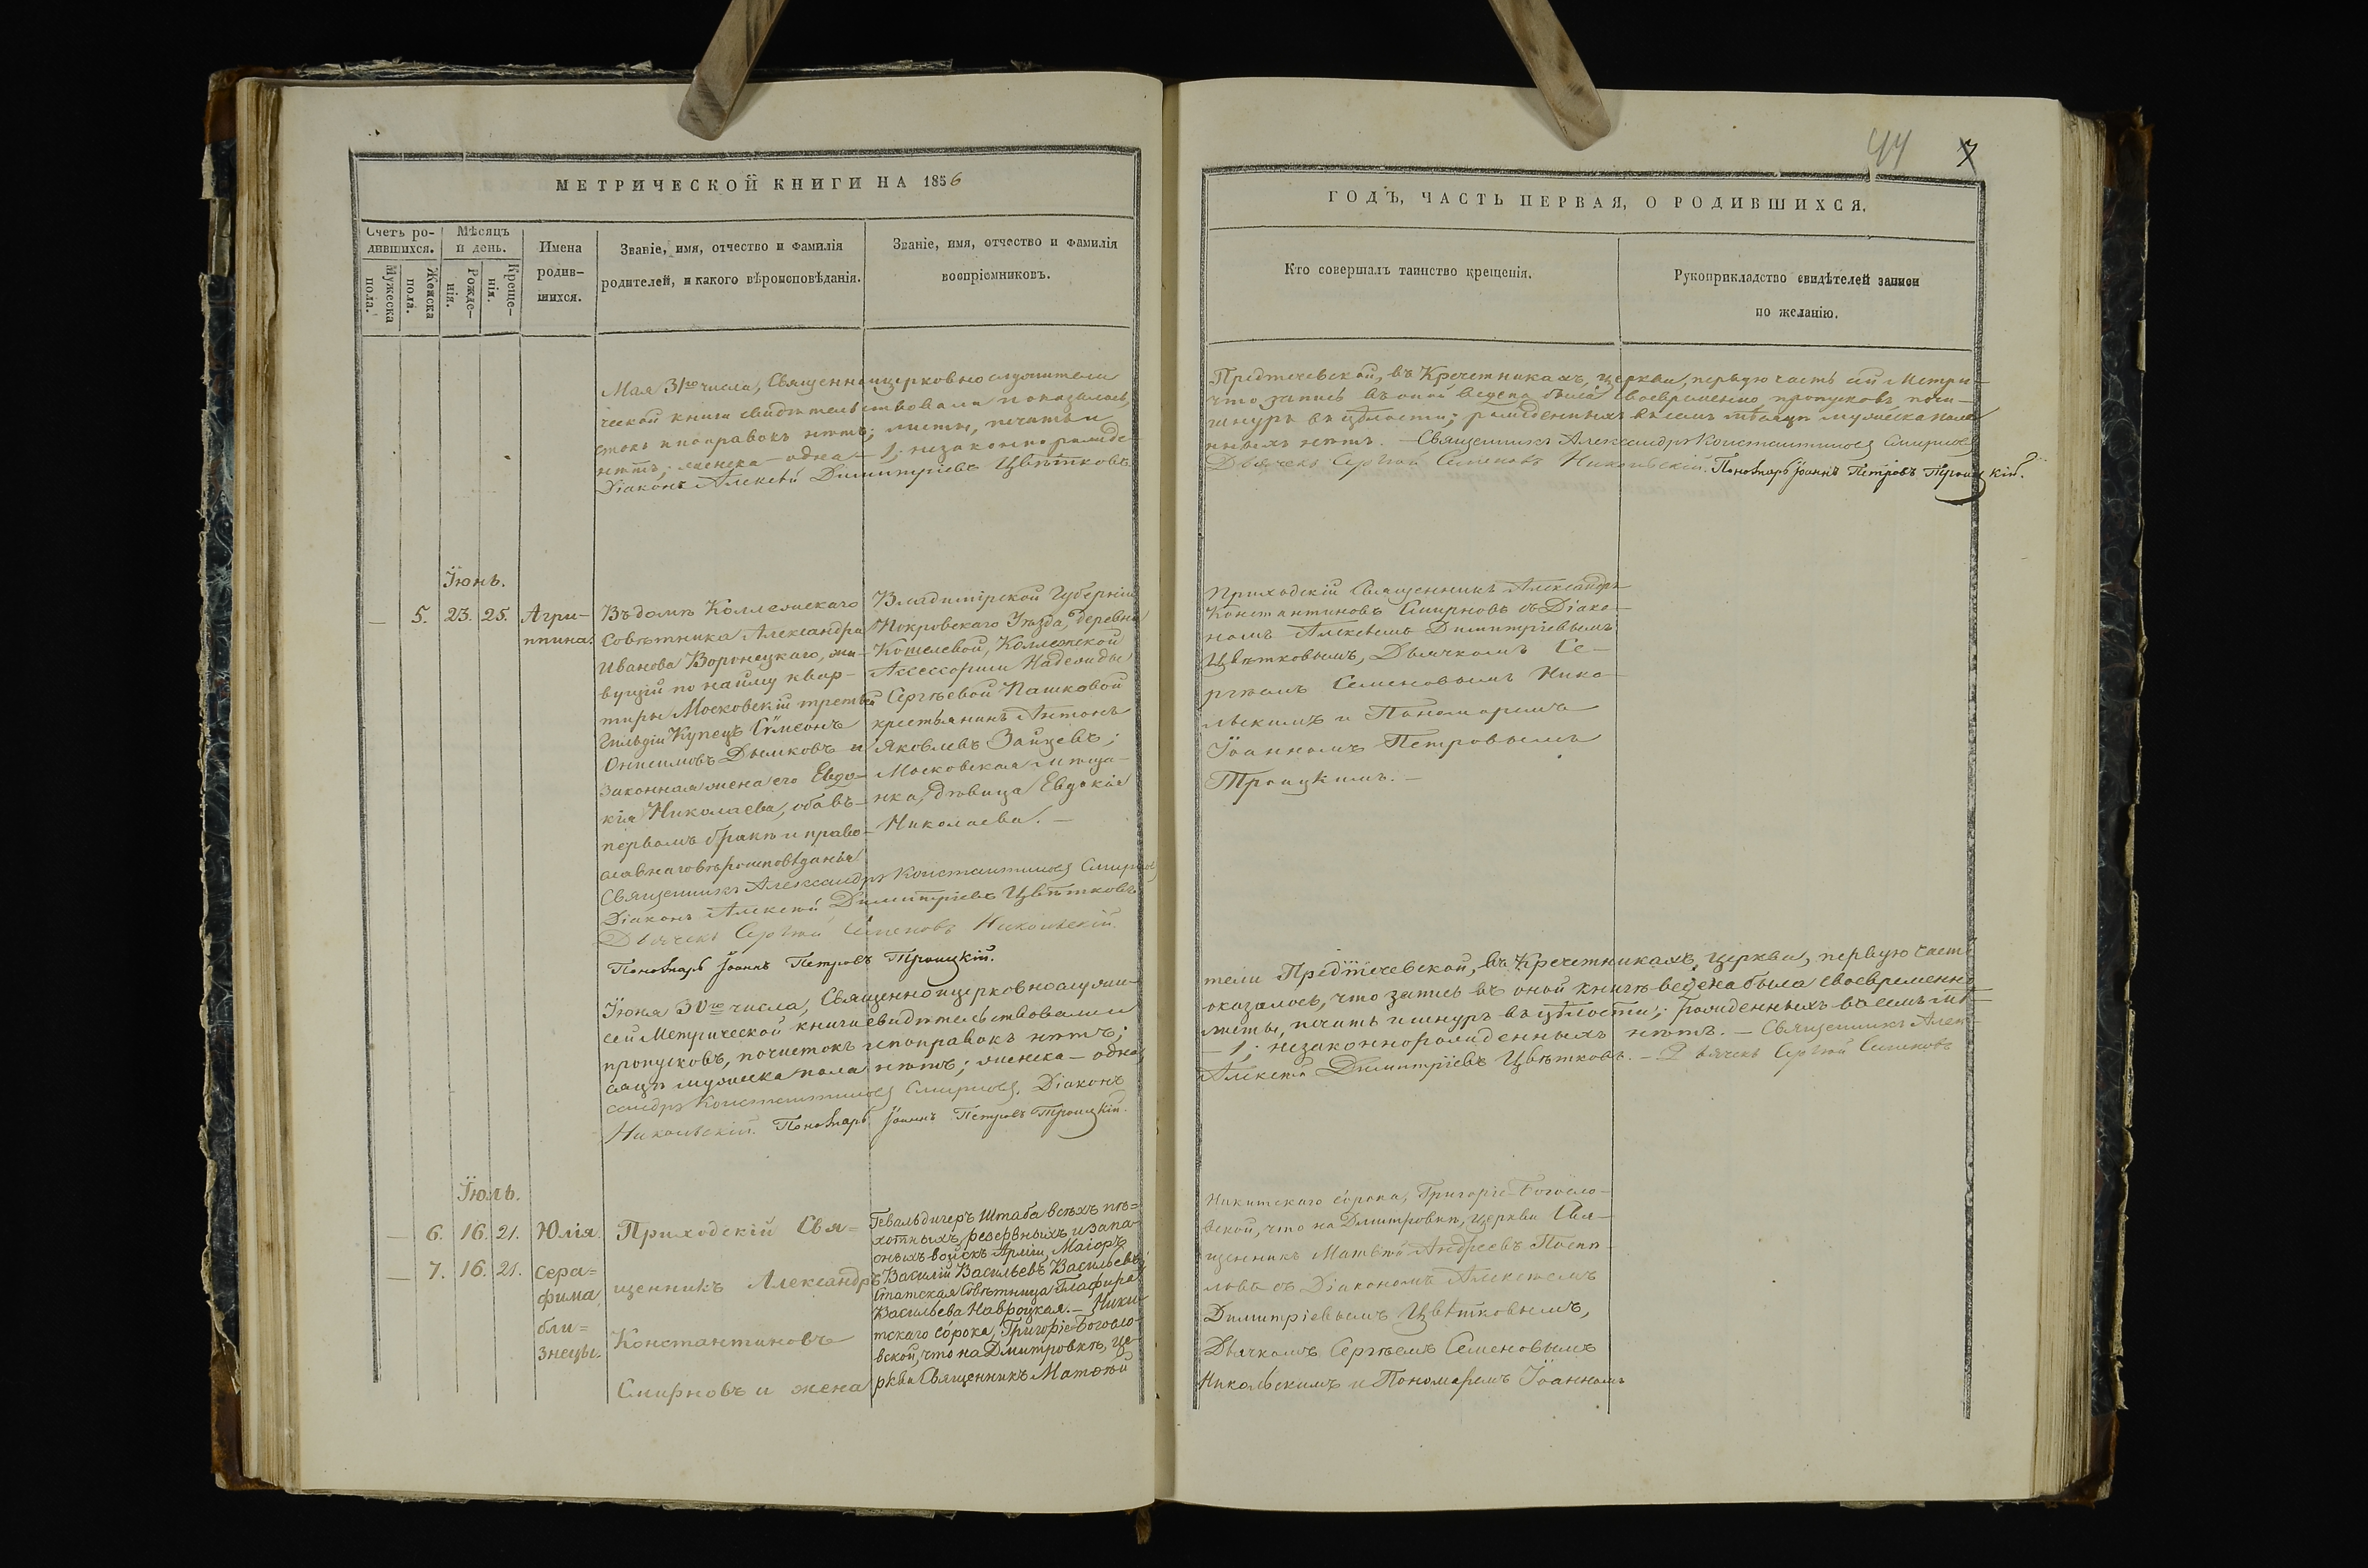 МЕТРИЧЕСКОЙ КНИГИ НА 1856
Счетъ ро-
дившихся.
Мужеска
пола.
Женска
пола.
Мѣсяцъ
и день.
Рожде-
нія.
Креще-
нія.
Имена
родив-
шихся.
Званіе, имя, отчество и фамилія
родителей, и какого вѣроисповѣданія.
Званіе, имя, отчество и фамилія
воспріемниковъ.
Мая 31го числа, Священноицерковнослужители
ческой книги свидѣтельствовали и оказалось,
стокъ и поправокъ нѣтъ; листы, печать и
нѣтъ; женска – одна – 1; незаконно рожде-
Діаконъ Алексѣй Димитріевъ Цвѣтковъ
Іюнь.
— 5. 23. 25. Агри-
ппина.
Въ домѣ Коллежскаго
Совѣтника Александра
Иванова Воронецкаго, жи-
вущій по найму квар-
тиры Московскій третьей
Гильдіи Купецъ Сѵмеонъ
Онисимовъ Дымковъ и
законная жена его Евдо-
кія Николаева, оба въ
первомъ бракѣ и право-
славнаго вѣроисповѣданія
Владимірской Губерніи
Покровскаго Уѣзда, деревни
Кошелевой, Коллежской
Ассессорши Надежды
Сергѣевой Пашковой
крестьянинъ Антонъ
Яковлевъ Зайцевъ;
Московская мѣща-
нка, дѣвица Евдокія
Николаева. —
Священникъ Александръ Константиновъ Смирновъ
Діаконъ Алексѣй Димитріевъ Цвѣтковъ
Дьячекъ Сергѣй Семеновъ Никольскій.
Пономарь Іоаннъ Петровъ Троицкій.
Іюня 30го числа, Священноицерковнослужи-
сей Метрической книги свидѣтельствовали и
пропусковъ, почистокъ и поправокъ нѣтъ;
сяцъ мужеска пола нѣтъ; женска – одна
сандръ Константиновъ Смирновъ. Діаконъ
Никольскій. Пономарь Іоаннъ Петровъ Троицкій.
Іюль.
— 6. 16. 21. Юлія.
— 7. 16. 21. Сера=
фима
бли=
знецы.
Приходскій Свя=
щенникъ Александръ
Константиновъ
Смирновъ и жена
Гевальдигеръ Штаба всѣхъ пѣ=
хотныхъ, резервныхъ и запа-
сныхъ войскъ Арміи, Маіоръ
Василій Васильевъ Васильевъ;
Статская Совѣтница Глафира
Васильева Навроцкая. – Ники-
тскаго со́рока, Григоріе-Богосло-
вской, что на Дмитровкѣ, це-
ркви Священникъ Матѳѣй
44 7
ГОДЪ, ЧАСТЬ ПЕРВАЯ, О РОДИВШИХСЯ.
Кто совершалъ таинство крещенія.
Рукоприкладство свидѣтелей записи
по желанію.
Предтечевской, въ Кречетникахъ, церкви, первую часть сей Метри-
что запись въ оной ведена была своевременно, пропусковъ, почи-
шнуръ въ цѣлости; рожденныхъ въ семъ мѣсяцѣ мужеска пола
нныхъ нѣтъ. – Священникъ Александръ Константиновъ Смирновъ
Дьячекъ Сергѣй Семеновъ Никольскій. Пономарь Іоаннъ Петровъ Троицкій.
Приходскій Священникъ Александръ
Константиновъ Смирновъ съ Діако-
номъ Алексѣемъ Димитріевымъ
Цвѣтковымъ, Дьячкомъ Се-
ргѣемъ Семеновымъ Нико-
льскимъ и Пономаремъ
Іоанномъ Петровымъ
Троицкимъ. —
тели Предтечевской, въ Кречетникахъ, церкви, первую часть
оказалось, что запись въ оной книгѣ ведена была своевременно
листы, печать и шнуръ въ цѣлости; рожденныхъ въ семъ мѣ-
– 1; незаконнорожденныхъ нѣтъ. – Священникъ Алек-
Алексѣй Димитріевъ Цвѣтковъ. – Дьячекъ Сергѣй Семеновъ
Никитскаго со́рока, Григоріе-Богосло-
вской, что на Дмитровкѣ, церкви Свя-
щенникъ Матѳѣй Андреевъ Поспѣ-
ловъ съ Діакономъ Алексѣемъ
Димитріевымъ Цвѣтковымъ,
Дьячкомъ Сергѣемъ Семеновымъ
Никольскимъ и Пономаремъ Іоанномъ